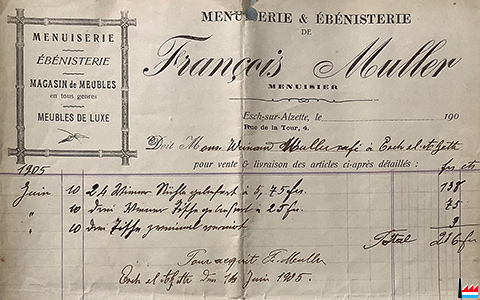 MENUISERIE
ÉBÉNISTERIE
MAGASIN de MEUBLES
en tous genres
MEUBLES DE LUXE
MENUISERIE & ÉBÉNISTERIE
DE
François Muller
MENUISIER
Esch-sur-Alzette, le 190
Rue de la Tour, 4.
Doit Mons. Muller café à Esch
pour vente & livraison des articles ci-après détaillés : frs cts
1905
Juin 10 24 Wiener Stühle geliefert à 5,75 frs. 138
" 10 drei Wiener Tische geliefert à 25 frs. 75
" 10 drei Tische 3
Total 216 frs
Pour acquit F. Muller
Esch den Juin 1905.